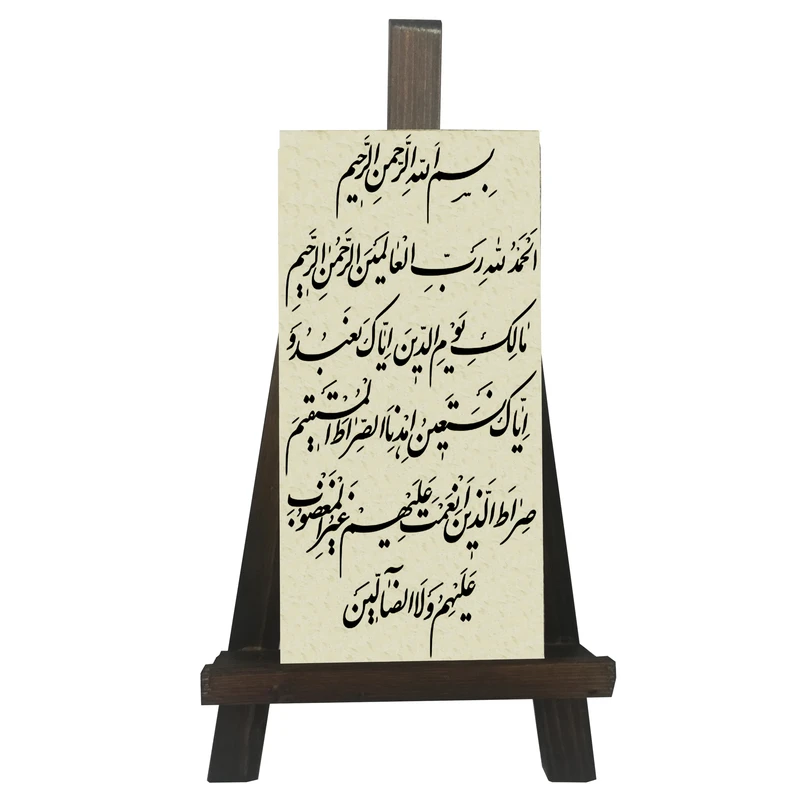 بِسمِ اللهِ الرَّحمنِ الرَّحیمِ
اَلْحَمْدُ للهِ رَبِّ الْعالَمینَ الرَّحْمٰنِ الرَّحیمِ
مٰالِکِ یَوْمِ الدّینِ اِیّاکَ نَعْبُدُ وَ
اِیّاکَ نَسْتَعینُ اِهْدِنَا الصِّرٰاطَ الْمُسْتَقیمَ
صِرٰاطَ الَّذینَ اَنْعَمْتَ عَلَیْهِمْ غَیْرِ الْمَغْضُوبِ
عَلَیْهِمْ وَلَا الضّآلّینَ